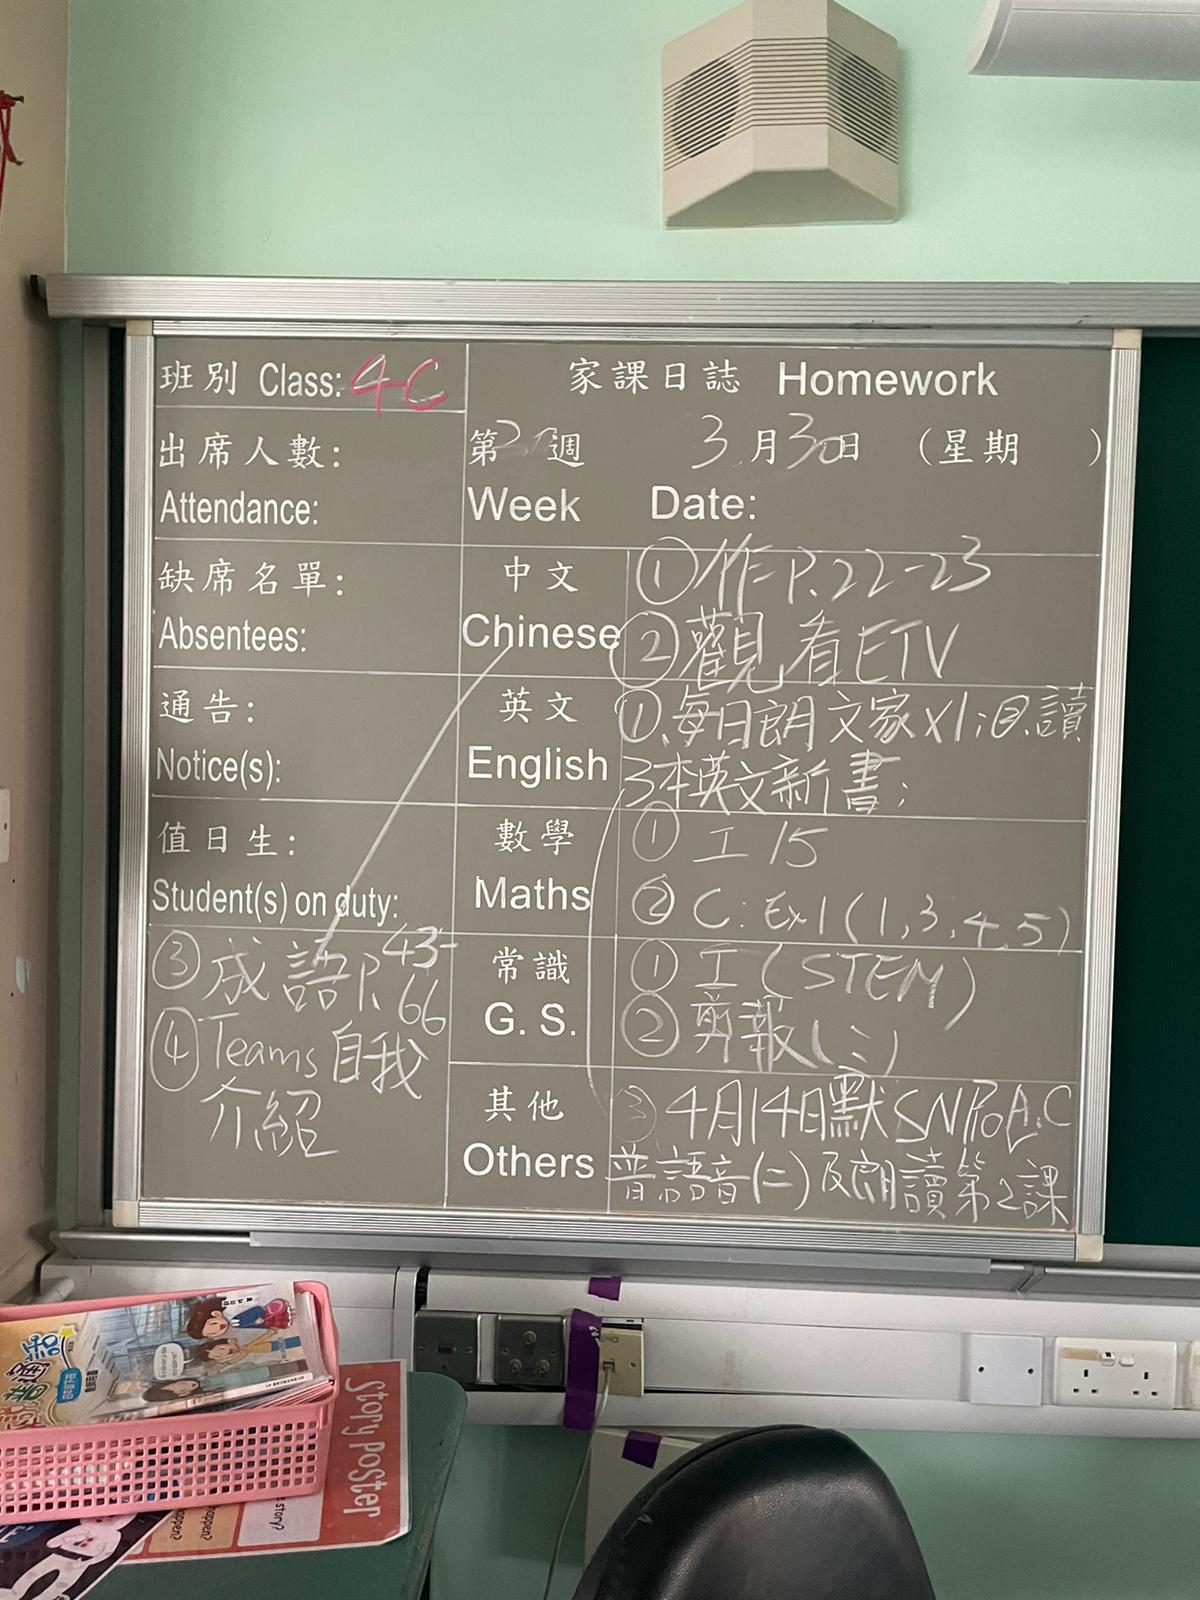 班別 Class: 4C
家課日誌 Homework
出席人數:
Attendance:
第 週 3月30日 (星期 )
Week Date:
缺席名單:
Absentees:
中文
Chinese
① 作 P.22-23
② 觀看ETV
通告:
Notice(s):
英文
English
①.每日朗文家X1;②.讀
3本英文新書;
值日生:
Student(s) on duty:
數學
Maths
① 工15
② C: Ex1 (1,3,4,5)
③ 成語P.43-
66
④ Teams自我
介紹
常識
G. S.
① 工 (STEM)
② 剪報(二)
其他
Others
③ 4月14日默SNP6A,C
普語音(二)及朗讀第2課
Story Poster
story?
happen?
happen?